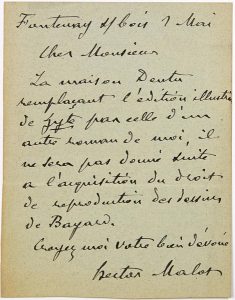 Fontenay s/bois 2 Mai
Cher Monsieur
La maison Dentu
remplaçant l'édition illustrée
de Zyte par celle d'un
autre roman de moi, il
ne sera pas donné suite
à l'acquisition du droit
de reproduction des dessins
de Bayard.
Croyez moi votre bien dévoué
Hector Malot